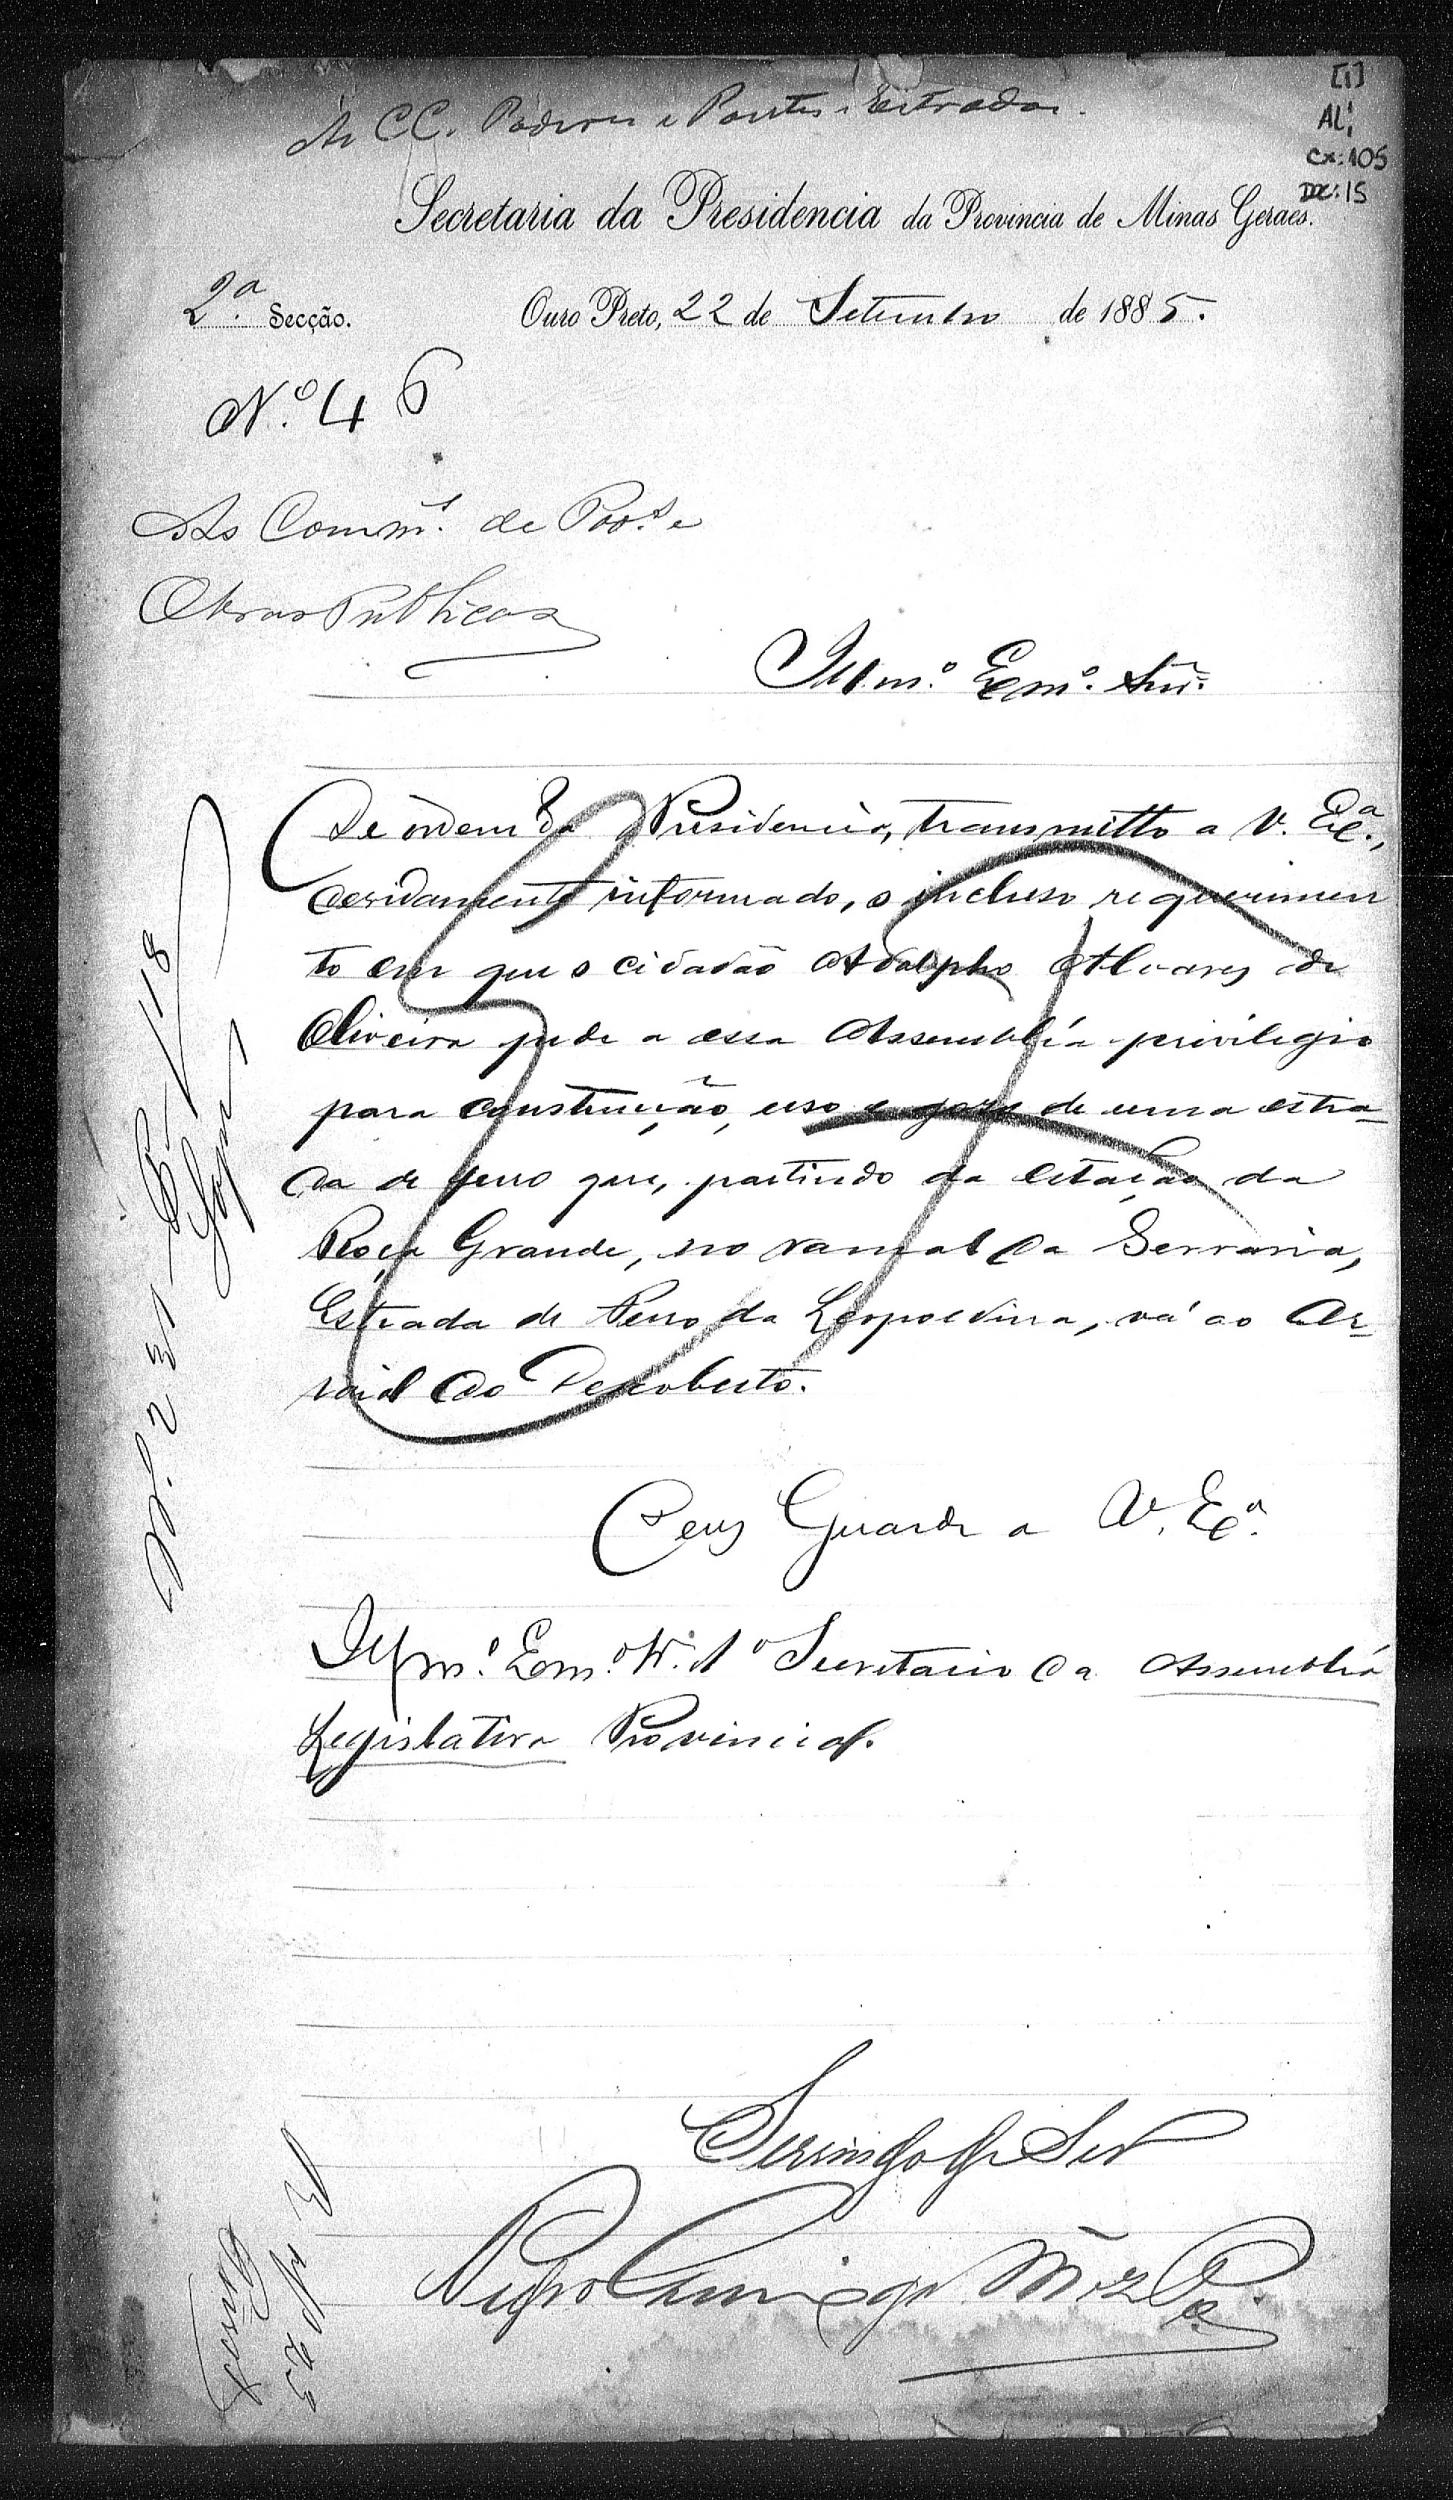 [1]
AL;
Cx: 105
DC: 15
CC. Poderes e Pontes e Estradas.
Secretaria da Presidencia da Provincia de Minas Geraes.
2.ª Secção. Ouro Preto, 22 de Setembro de 1885.
N.º 46
As Comm.s de Pod.s e
Obras Publicas
Illm.º Exm.º Snr.
De ordem da Presidencia, transmitto a V. Exª.,
devidamente informado, o incluso requerimen
to em que o cidadão Adolpho Alvares de
Oliveira pede a essa Assembléa privilegio
para construcção, uso e gozo de uma estra-
da de ferro que, partindo da estação da
Roça Grande, no ramal da Serraria,
Estrada de Ferro da Leopoldina, vá ao Ar-
raial do Descoberto.
Deus Guarde a V. Exª.
Illm.º Exm.º Sr. 1º Secretario da Assembléa
Legislativa Provincial.